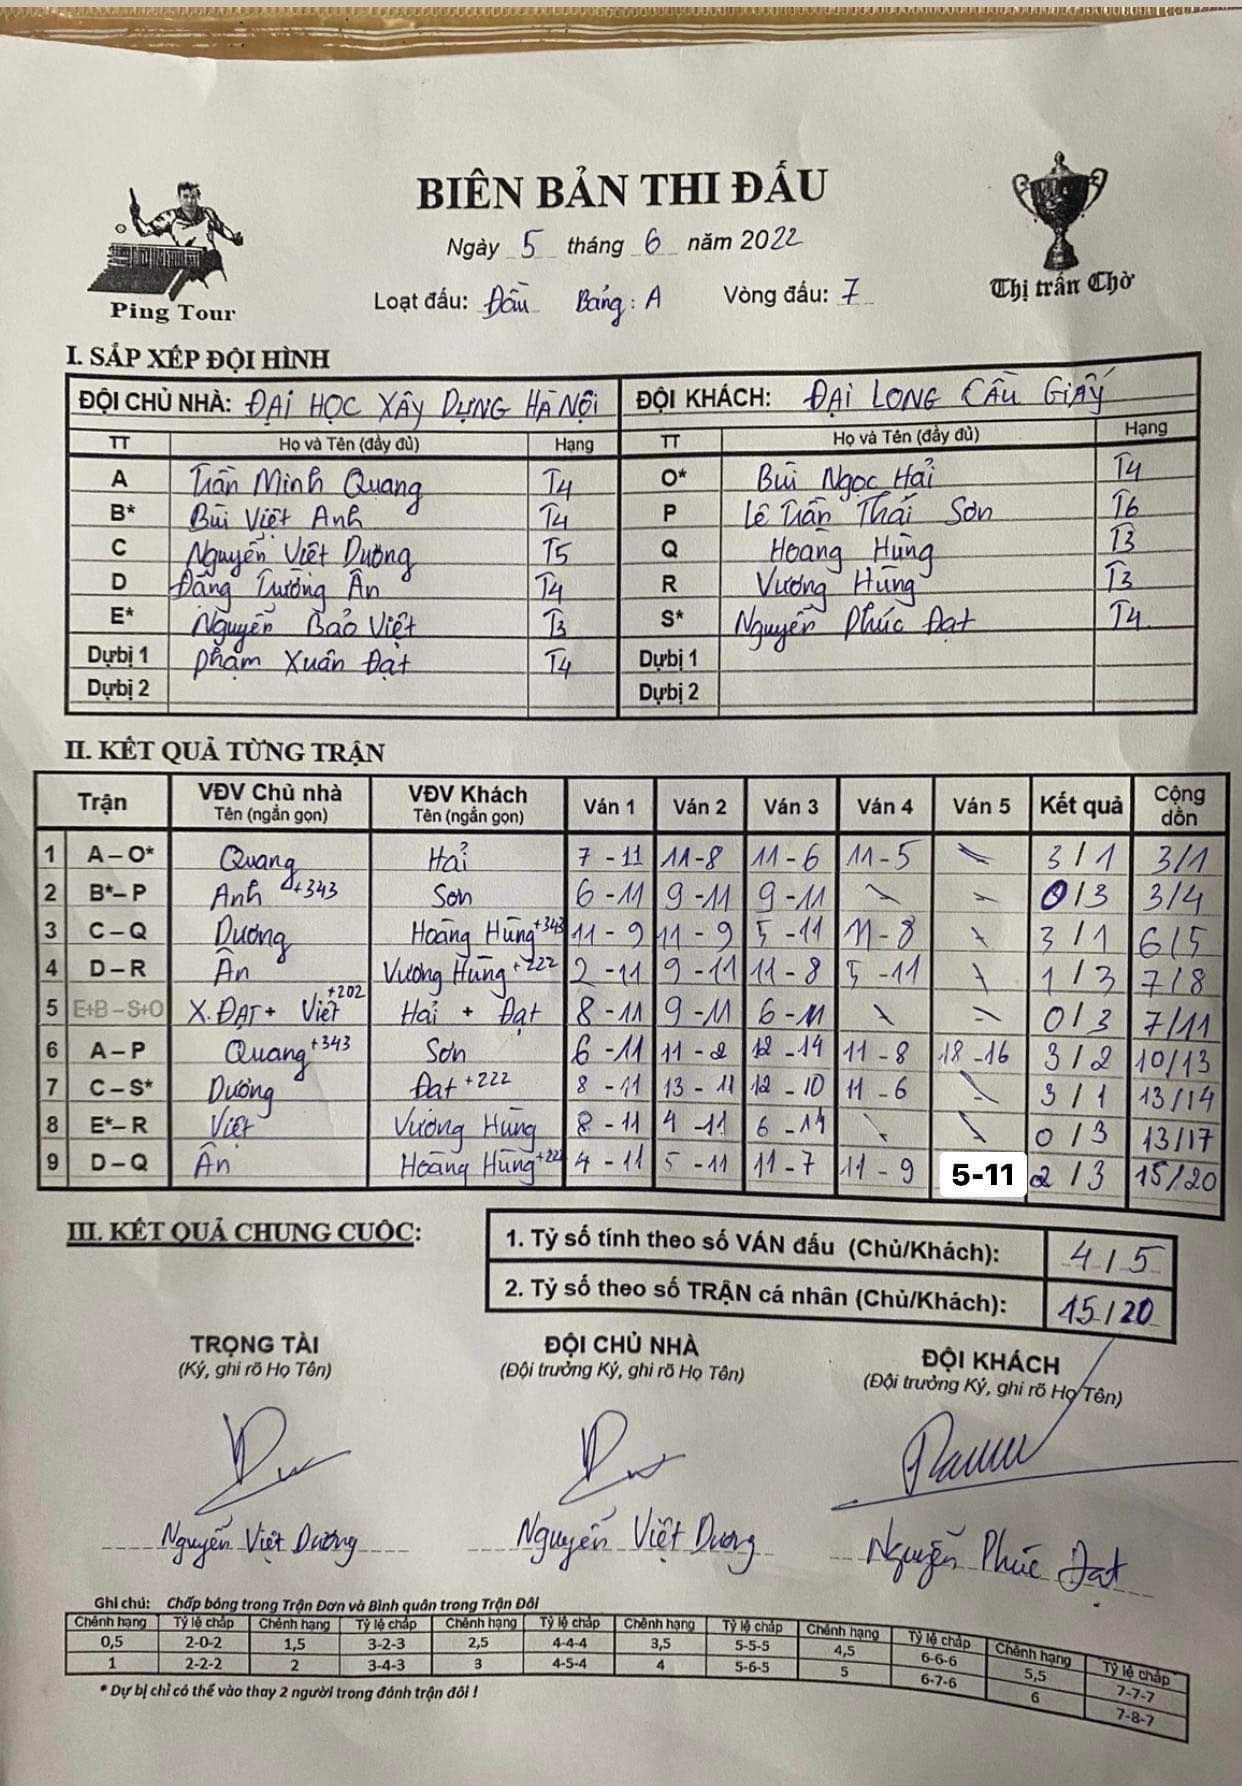 BIÊN BẢN THI ĐẤU
Ngày 5 tháng 6 năm 2022
Ping Tour
Thị trấn Chờ
Loạt đấu: Đầu Bảng: A Vòng đấu: 7
I. SẮP XẾP ĐỘI HÌNH
ĐỘI CHỦ NHÀ: ĐẠI HỌC XÂY DỰNG HÀ NỘI ĐỘI KHÁCH: ĐẠI LONG CẦU GIẤY
TT Họ và Tên (đầy đủ) Hạng TT Họ và Tên (đầy đủ) Hạng
A Trần Minh Quang T4 O* Bùi Ngọc Hải T4
B* Bùi Việt Anh T4 P Lê Trần Thái Sơn T6
C Nguyễn Việt Dương T5 Q Hoàng Hùng T3
D Đặng Trường Ân T4 R Vương Hùng T3
E* Nguyễn Bảo Việt T3 S* Nguyễn Phúc Đạt T4
Dự bị 1 Phạm Xuân Đạt T4 Dự bị 1
Dự bị 2 Dự bị 2
II. KẾT QUẢ TỪNG TRẬN
Trận VĐV Chủ nhà Tên (ngắn gọn) VĐV Khách Tên (ngắn gọn) Ván 1 Ván 2 Ván 3 Ván 4 Ván 5 Kết quả Cộng dồn
1 A – O* Quang Hải 7 - 11 11 - 8 11 - 6 11 - 5 3 / 1 3/1
2 B* – P Anh +343 Sơn 6 - 11 9 - 11 9 - 11 0 / 3 3/4
3 C – Q Dương Hoàng Hùng +343 11 - 9 11 - 9 5 - 11 11 - 8 3 / 1 6/5
4 D – R Ân Vương Hùng +222 2 - 11 9 - 11 11 - 8 5 - 11 1 / 3 7/8
5 E+B – S+O X.ĐẠT + Việt +202 Hải + Đạt 8 - 11 9 - 11 6 - 11 0 / 3 7/11
6 A – P Quang +343 Sơn 6 - 11 11 - 2 12 - 14 11 - 8 18 - 16 3 / 2 10/13
7 C – S* Dương Đạt +222 8 - 11 13 - 11 12 - 10 11 - 6 3 / 1 13/14
8 E* – R Việt Vương Hùng 8 - 11 4 - 11 6 - 11 0 / 3 13/17
9 D – Q Ân Hoàng Hùng +222 4 - 11 5 - 11 11 - 7 11 - 9 5-11 2 / 3 15/20
III. KẾT QUẢ CHUNG CUỘC:
1. Tỷ số tính theo số VÁN đấu (Chủ/Khách): 4 / 5
2. Tỷ số theo số TRẬN cá nhân (Chủ/Khách): 15 / 20
TRỌNG TÀI ĐỘI CHỦ NHÀ ĐỘI KHÁCH
(Ký, ghi rõ Họ Tên) (Đội trưởng Ký, ghi rõ Họ Tên) (Đội trưởng Ký, ghi rõ Họ Tên)
Nguyễn Việt Dương Nguyễn Việt Dương Nguyễn Phúc Đạt
Ghi chú: Chấp bóng trong Trận Đơn và Bình quân trong Trận Đôi
Chênh hạng Tỷ lệ chấp Chênh hạng Tỷ lệ chấp Chênh hạng Tỷ lệ chấp Chênh hạng Tỷ lệ chấp Chênh hạng Tỷ lệ chấp Chênh hạng Tỷ lệ chấp
0,5 2-0-2 1,5 3-2-3 2,5 4-4-4 3,5 5-5-5 4,5 6-6-6 5,5 7-7-7
1 2-2-2 2 3-4-3 3 4-5-4 4 5-6-5 5 6-7-6 6 7-8-7
* Dự bị chỉ có thể vào thay 2 người trong đánh trận đôi !